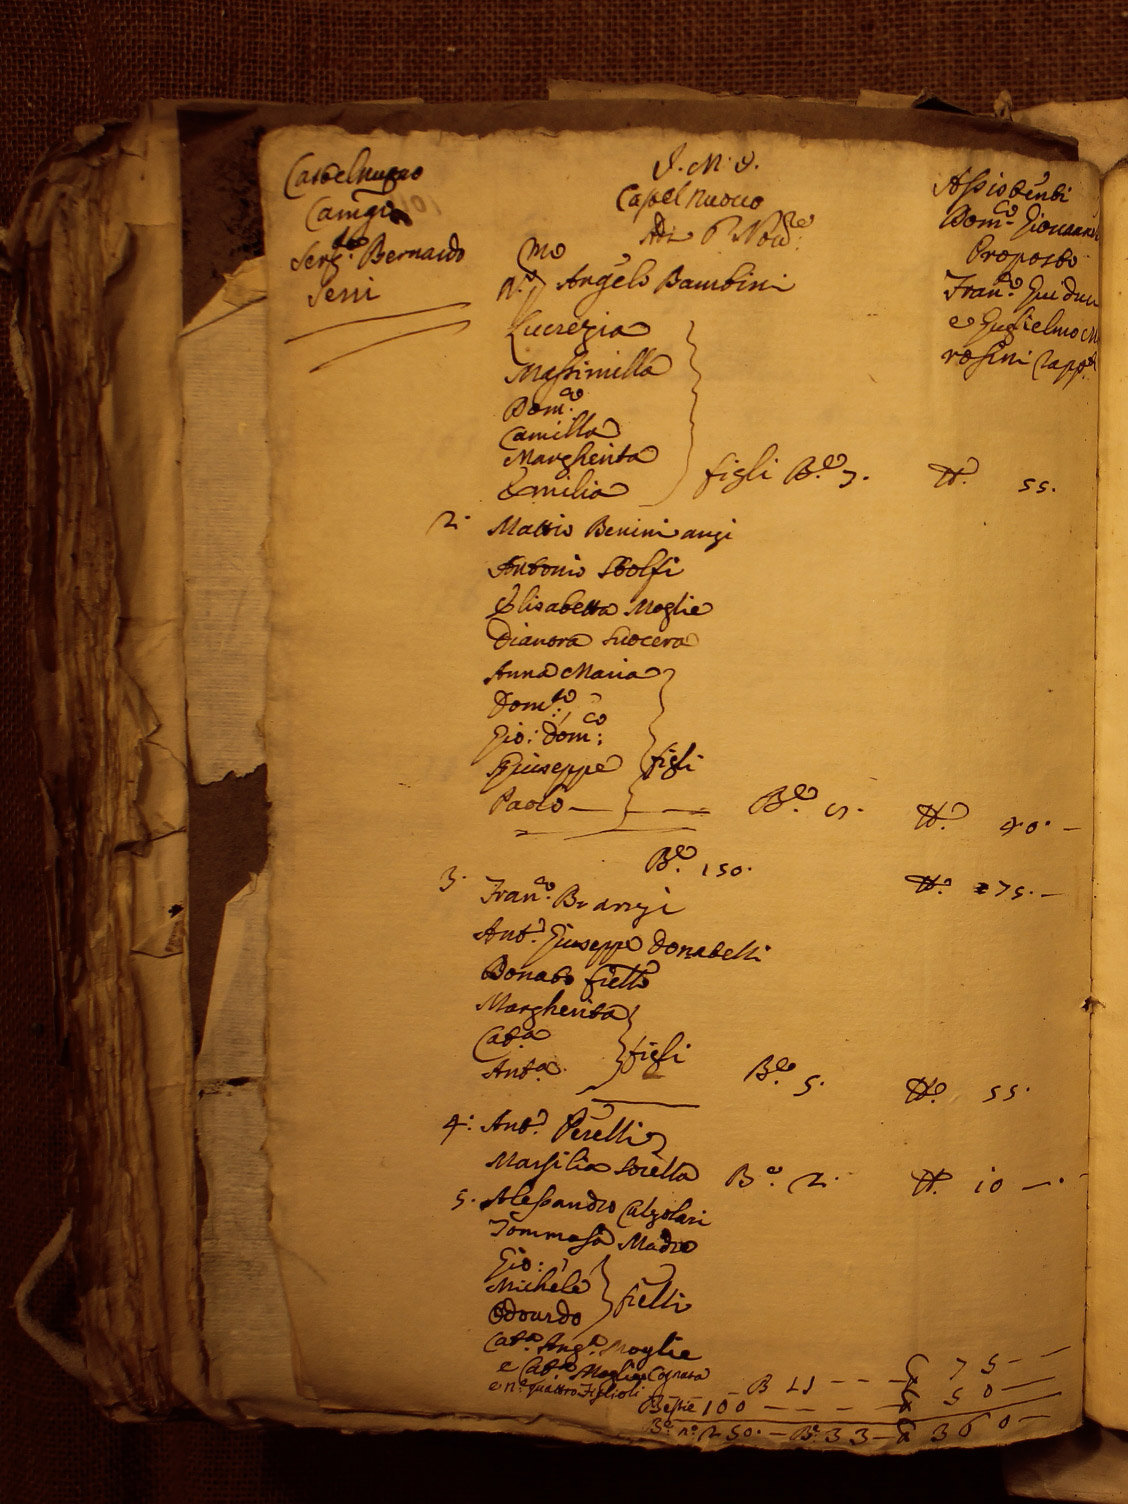 Castelnuovo
Camgi
Serg.te Bernardo
Serri
J. M. J.
Castel nuovo
Adi P.º Nov.re
Assistenti
Dom.co Giovann
Proposto
Fran.co Guiducci
e Guglielmo M
rosini Rapp.ti
mo
N.º 1 Angelo Bambini
Lucrezia
Massimilla
Dom.co
Camilla
Margherita
Emilia figli B.e 7. 55.
2. Mattio Beninianzi
Antonio Stolfi
Elisabetta Moglie
Dianora Suocera
Anna Maria
Dom.co
Gio: Dom.co
Giuseppe figli
Paolo — B.e 9. 40. —
B.e 150. 75. —
3. Fran.co
Ant.º Giuseppe Donatelli
Donato fiello
Margherita
Cat.a figli
Ant.a B.e 5. 55.
4: Ant.º Perelli
Marsilia Sorella B.e 2. 10 —
5. Alessandro Calzolari
Tommasa Madre
Gio:
Michele fielli
Odoardo
Cat.a Ang.a Moglie
e Cat.a Moglie Cognata
e n.º quattro Figlioli B 11 - - - 75 —
Bestie 100 — — — 50 —
B.e n.º 250. — B.e 33 — 360 —